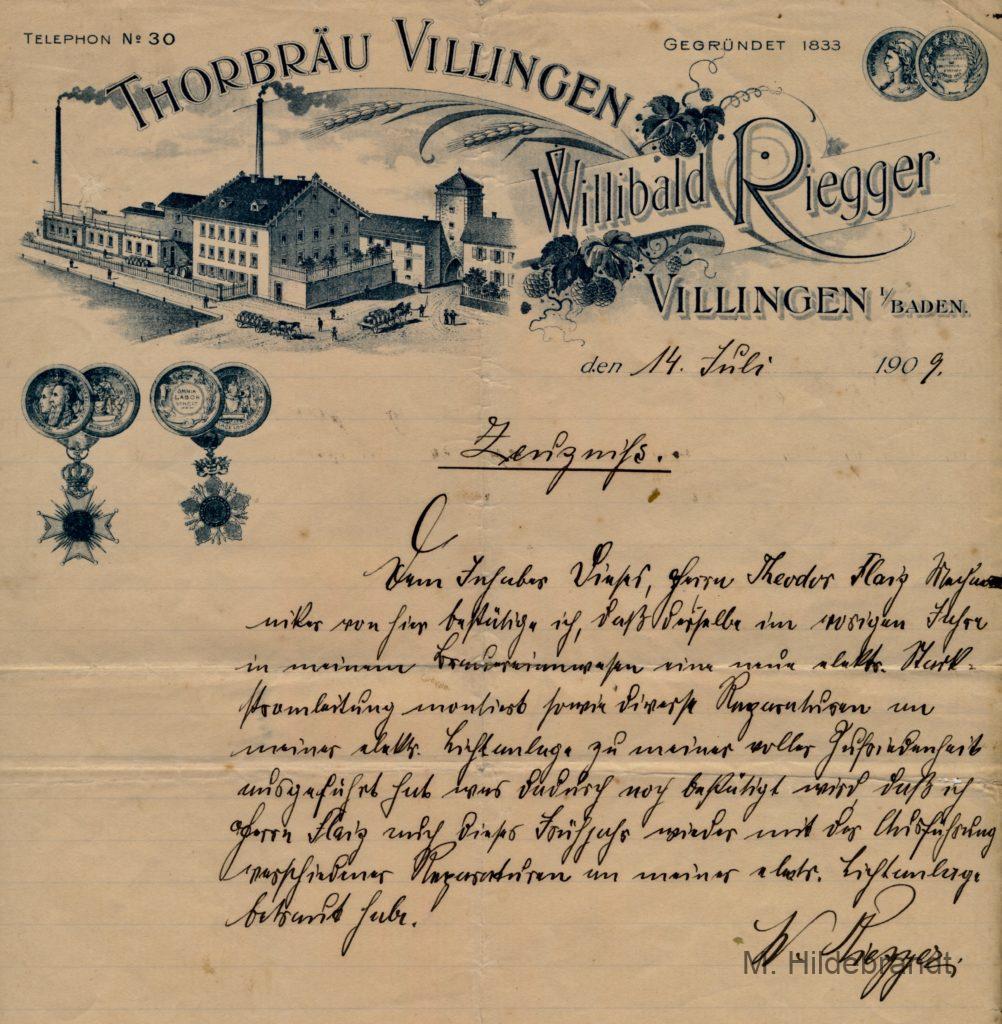 TELEPHON № 30
GEGRÜNDET 1833
THORBRÄU VILLINGEN
Willibald Riegger
VILLINGEN I/BADEN.
den 14. Juli 1909.
OMNIA
LABOR
Zeugniß.
Dem Inhaber Dieses, Herrn Theodor Flaig Mecha
niker von hier bestätige ich, daß derselbe im vorigen Jahre
in meinem Brauereianwesen eine neue elektr. Stark-
stromleitung montiert sowie diverse Reparaturen an
meiner elektr. Lichtanlage zu meiner voller Zufriedenheit
ausgeführt hat was dadurch noch bestätigt wird, daß ich
Herrn Flaig auch dieses Frühjahr wieder mit der Ausführung
verschiedener Reparaturen an meiner elektr. Lichtanlage
betraut habe.
W. Riegger.
M. Hildebrandt